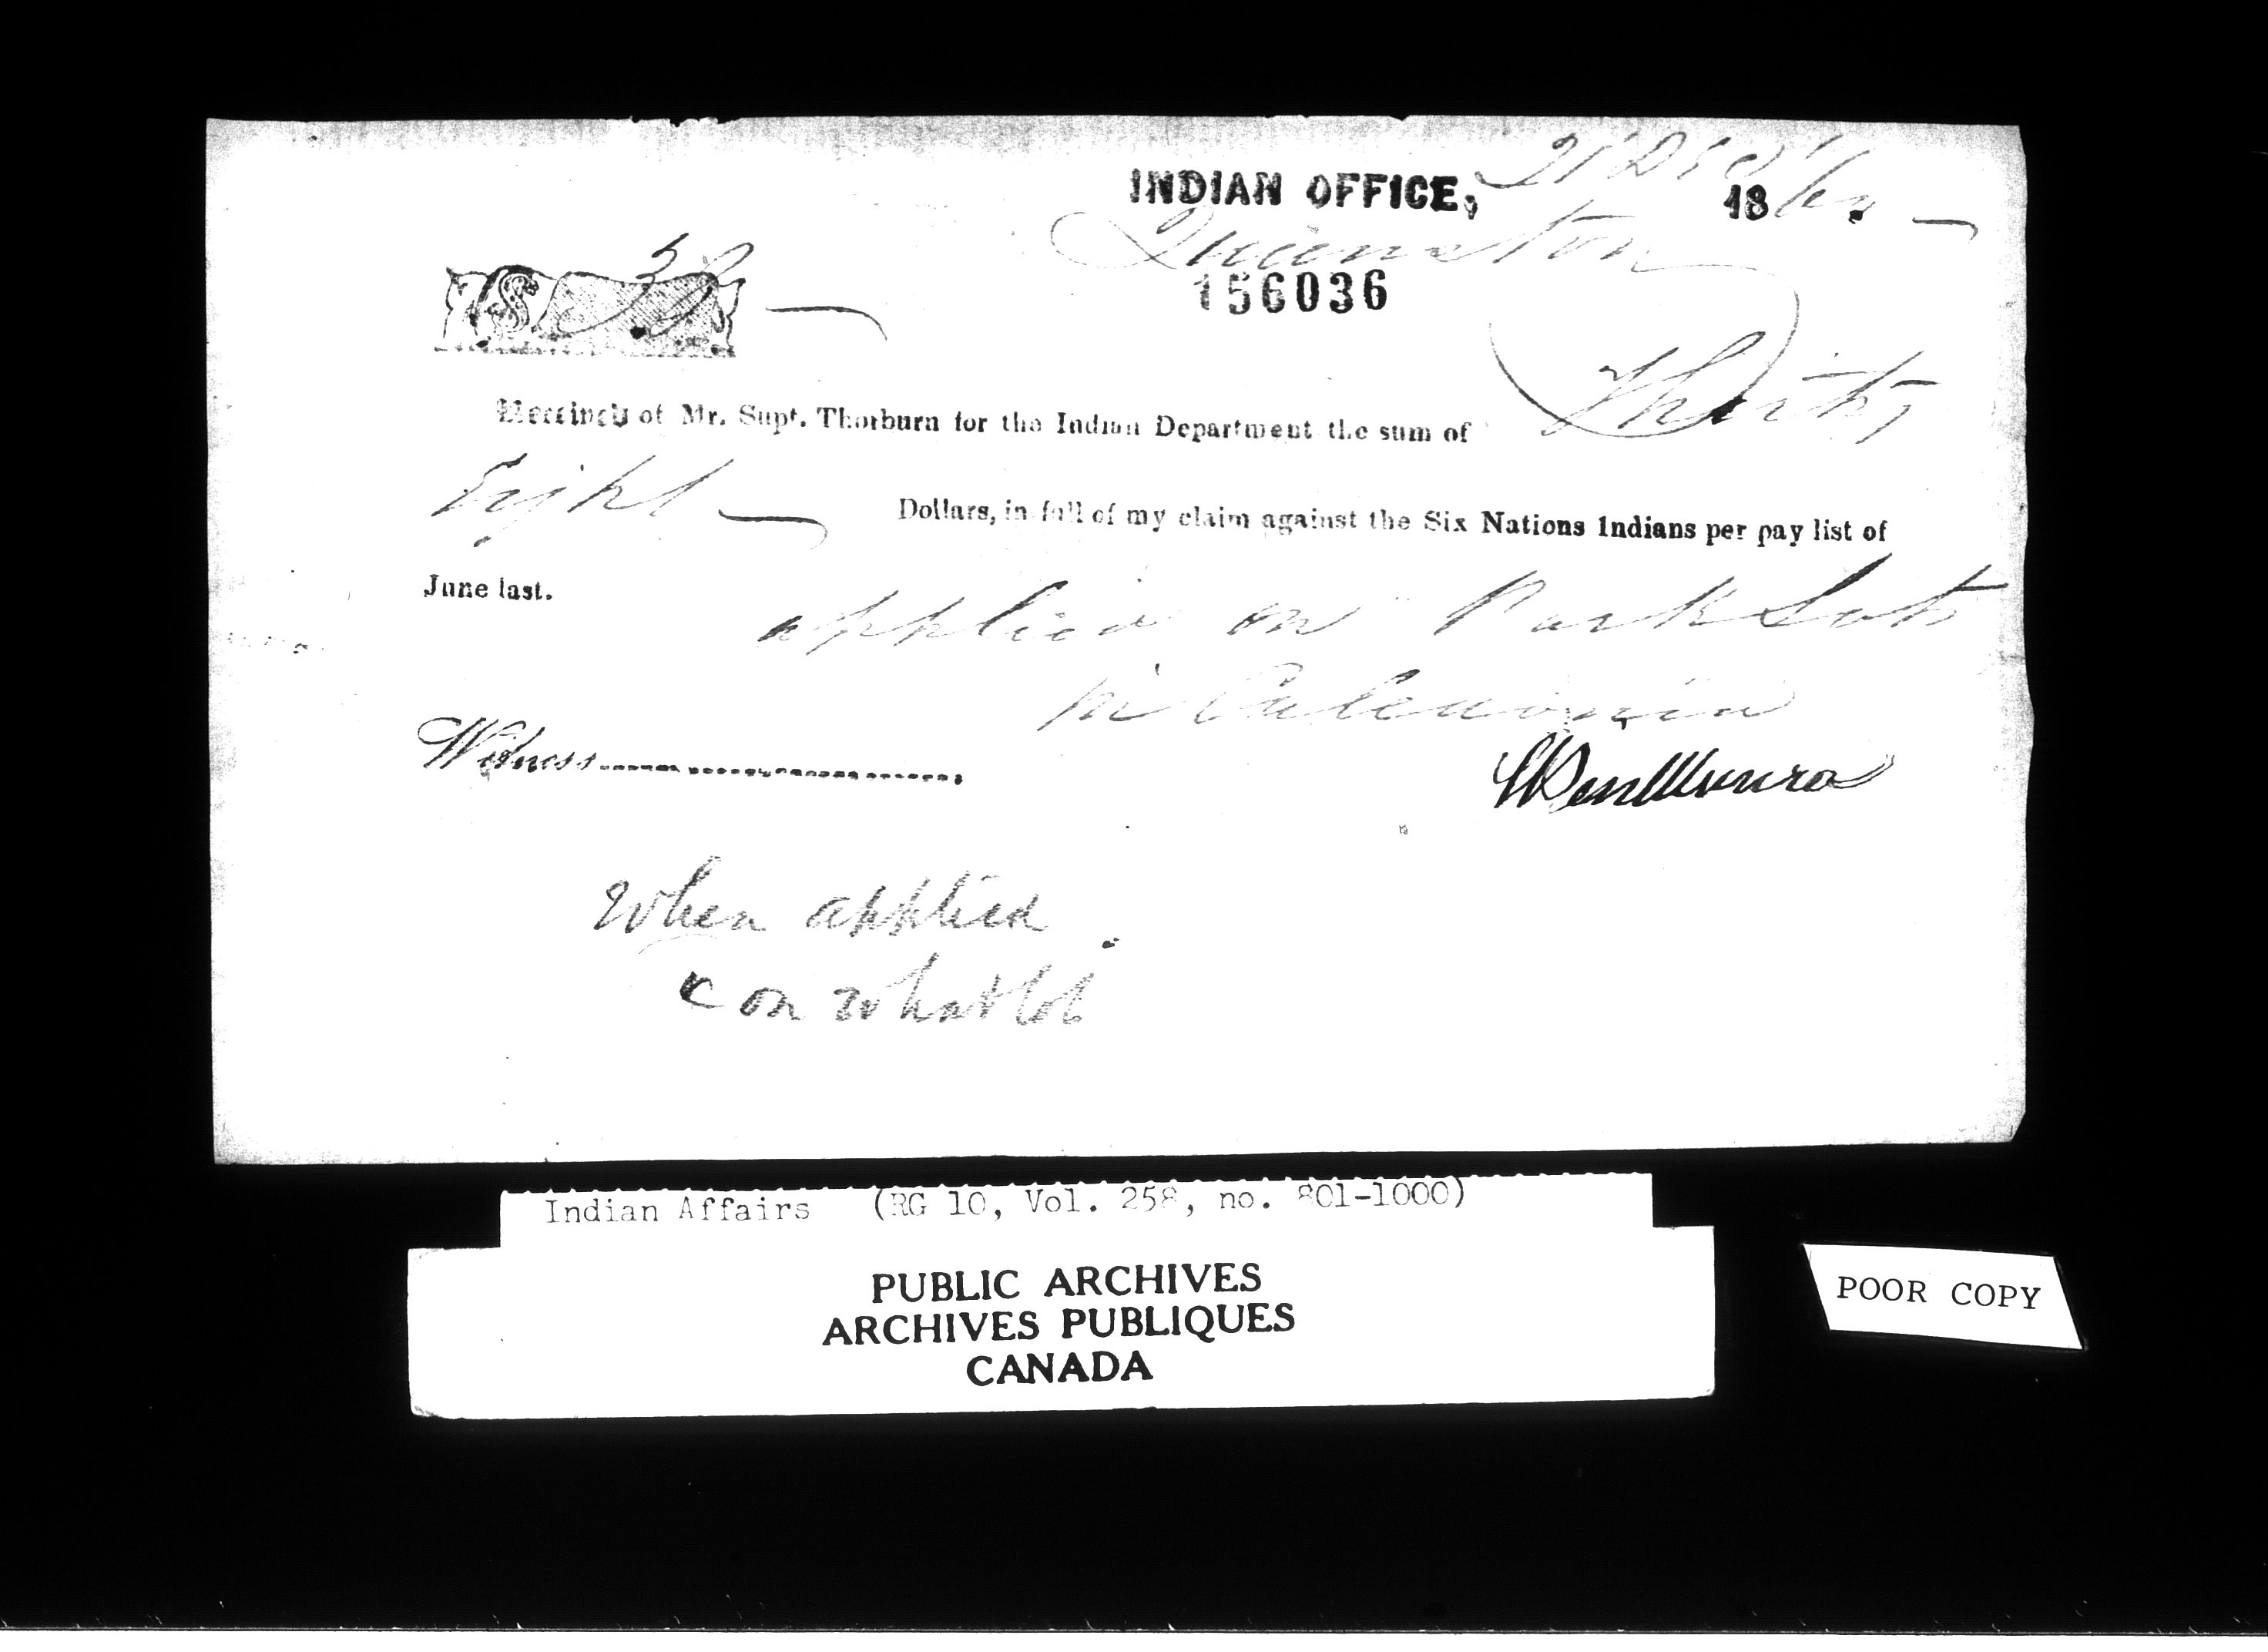 INDIAN OFFICE, 21 Dec 1860
Queenston
156036
$38
Received of Mr. Supt. Thorburn for the Indian Department the sum of Thirty
Eight Dollars, in full of my claim against the Six Nations Indians per pay list of
June last.
applied on Park Lots
in Caledonia
Witness
Munro
When applied
& on what lot
Indian Affairs (RG 10, Vol. 258, no. 801-1000)
PUBLIC ARCHIVES
ARCHIVES PUBLIQUES
CANADA
POOR COPY